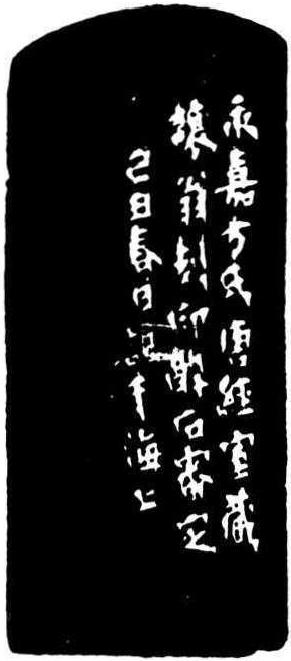 永嘉方氏傳經室藏
讓翁刻印醉石審定
己巳春日記于海上